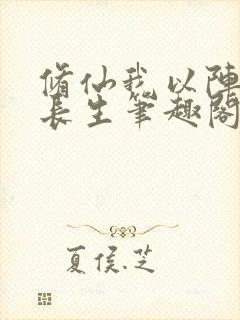 脩仙我以陣
長生筆趣閣
夏侯.芝